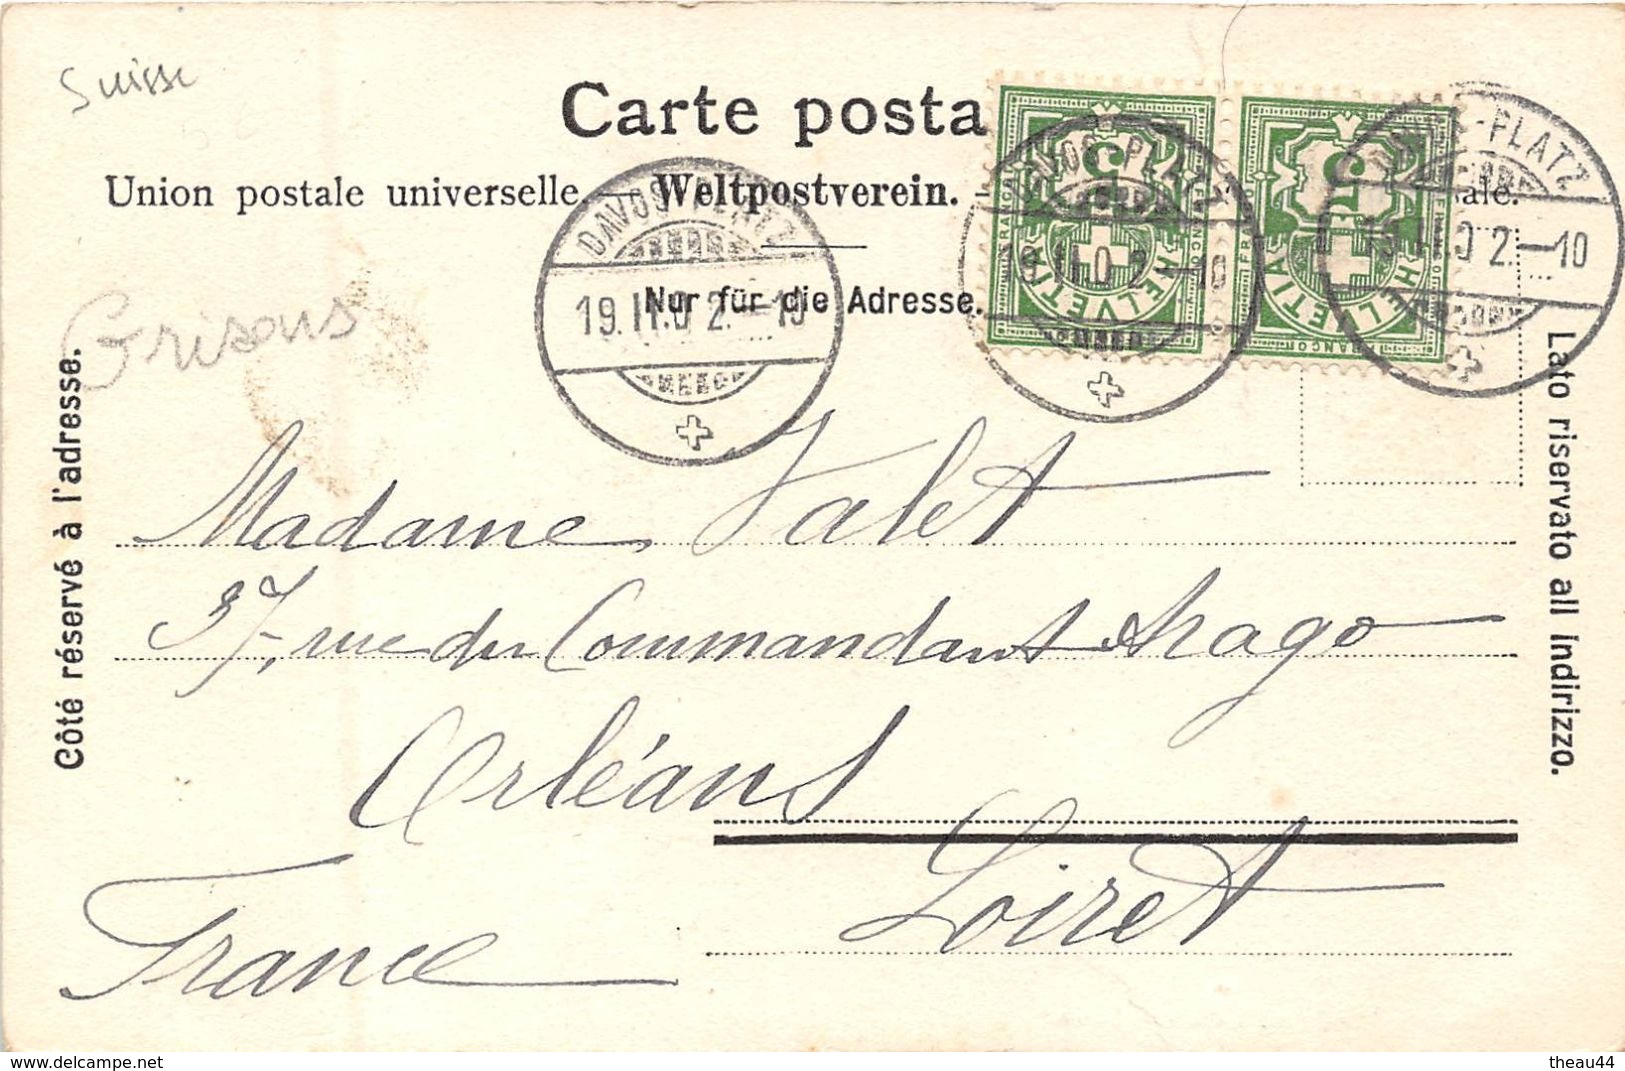 Suisse
Carte posta
Union postale universelle. - Weltpostverein. - ale.
Nur für die Adresse.
Grisons
DAVOS-PLATZ
19.II.02.-10
DAVOS-PLATZ
19.II.02.-10
DAVOS-PLATZ
19.II.02.-10
5
FRANCO
HELVETIA
5
FRANCO
HELVETIA
Côté réservé à l'adresse.
Lato riservato all indirizzo.
Madame Valet
37, rue du Commandant Arago
Orléans
Loiret
France
delcampe.net
theau44